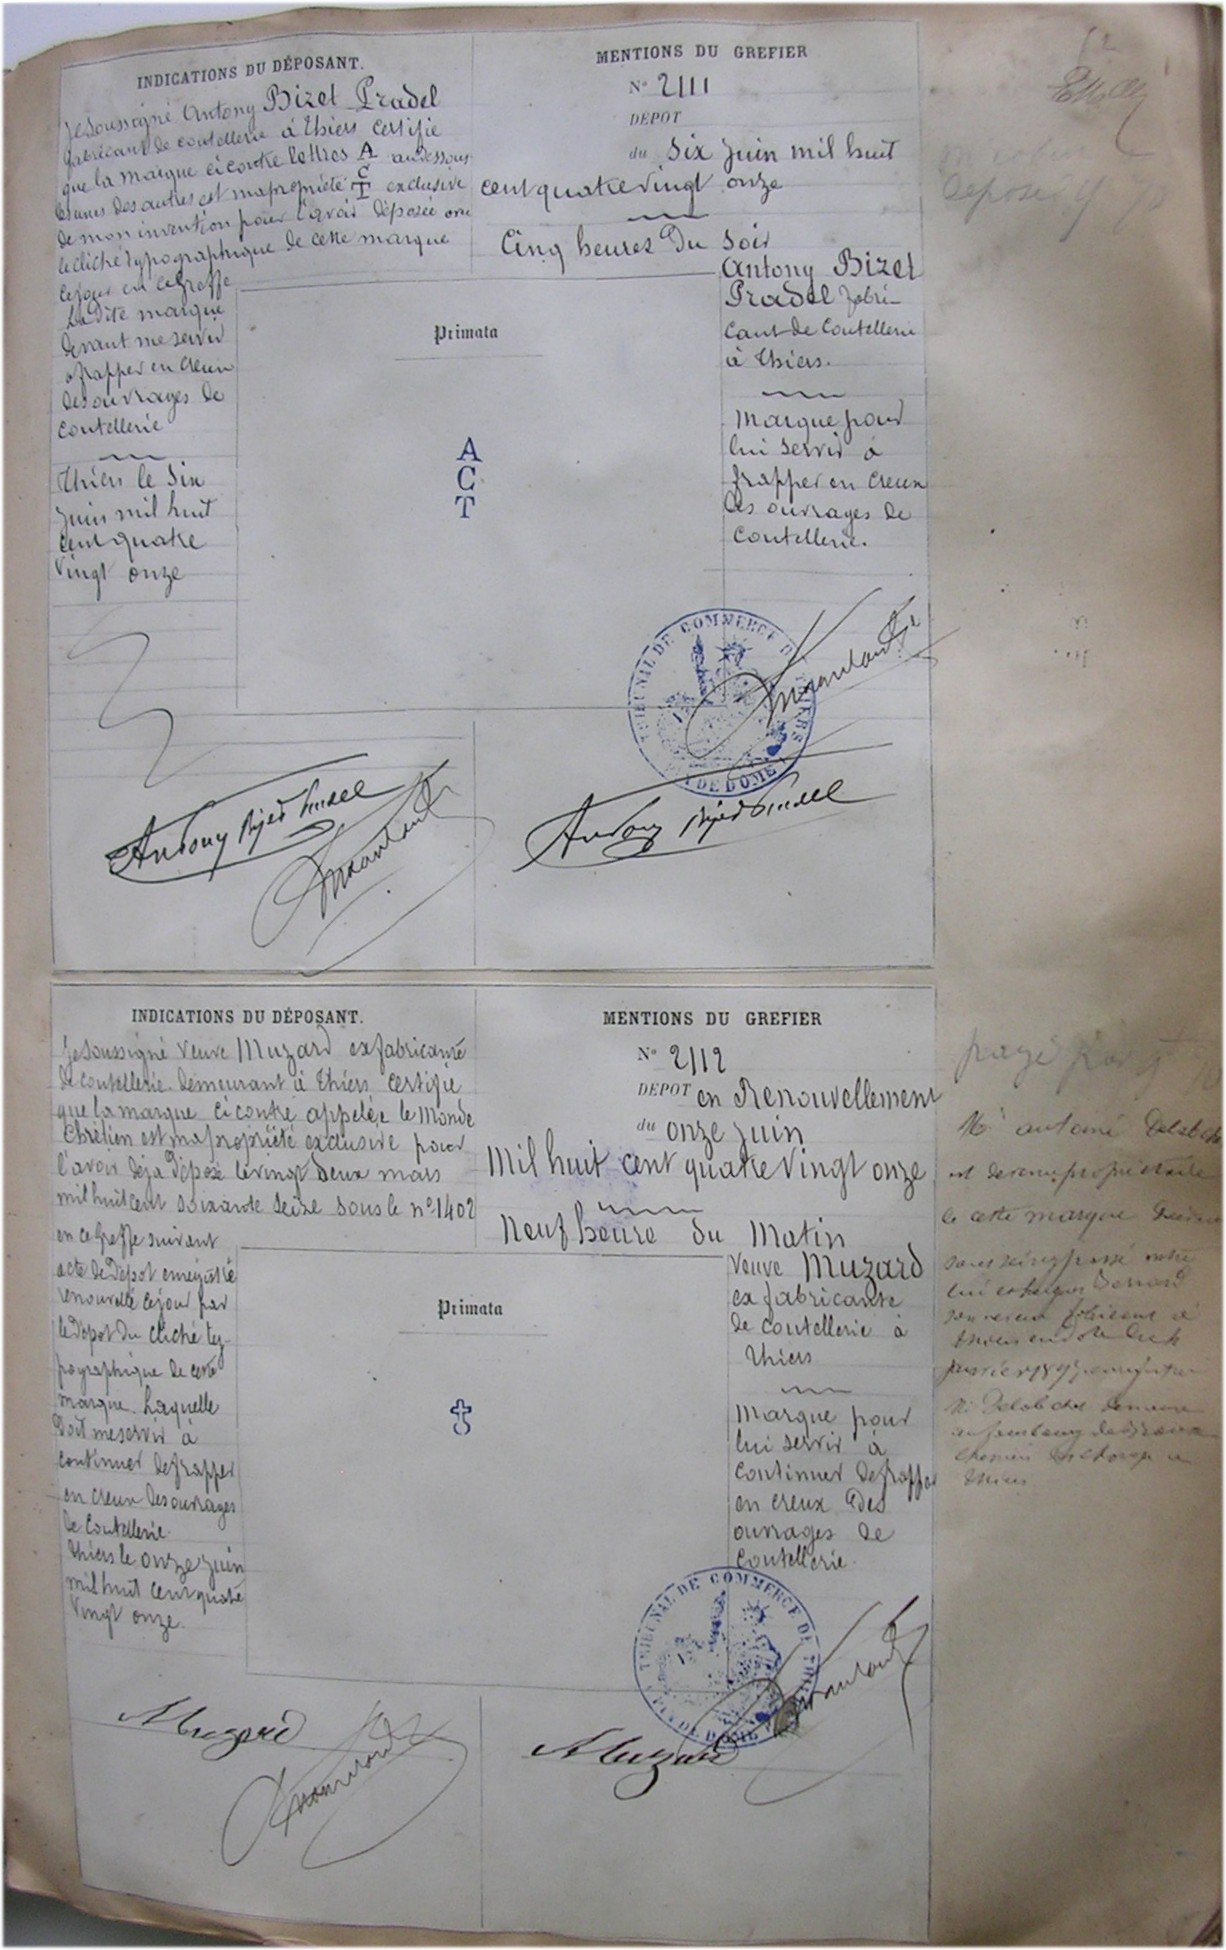 INDICATIONS DU DÉPOSANT.
Je soussigné Antony Bizet Pradel
fabricant de coutellerie à Thiers certifie
que la marque ci contre lettres A audessous
C
T
les unes des autres est ma propriété exclusive
de mon invention pour l'avoir déposée
le cliché typographique de cette marque
ce jour en ce Greffe
La dite marque
devant me servir
a frapper en creux
des ouvrages de
coutellerie
Thiers le Six
juin mil huit
cent quatre
vingt onze
MENTIONS DU GREFIER
No 2111
DEPOT
du Six juin mil huit
cent quatre vingt onze
Cinq heures Du Soir
Antony Bizet
Pradel fabri-
cant de Coutellerie
à Thiers.
Marque pour
lui servir à
frapper en creux
des ouvrages de
coutellerie.
Primata
A
C
T
TRIBUNAL DE COMMERCE DE THIERS
Antony Bizet Pradel
Antony Bizet Pradel
INDICATIONS DU DÉPOSANT.
Je soussigné Veuve Muzard exfabricante
de coutellerie demeurant à Thiers certifie
que la marque ci contre appelée le Monde
Chrétien est ma propriété exclusive pour
l'avoir déja déposé le vingt deux mars
mil huit cent soixante seize sous le no 1402
en ce Greffe suivant
acte de Dépot enregistré
renouvellé ce jour par
le dépot du cliché ty-
pographique de cette
marque. Laquelle
doit me servir à
continuer de frapper
en creux des ouvrages
de Coutellerie.
Thiers le onze juin
mil huit cent quatre
Vingt onze.
MENTIONS DU GREFIER
No 2112
DEPOT en Renouvellement
du onze juin
Mil huit cent quatre Vingt onze
Neuf heure du Matin
Veuve Muzard
ex fabricante
de coutellerie à
Thiers
Marque pour
lui servir à
continuer de frapper
en creux des
ouvrages de
Coutellerie.
Primata
TRIBUNAL DE COMMERCE DE THIERS
PUY DE DOME
Muzard
Muzard
payé par
Mr antoine
est devenu propriétaire
de cette marque
Thiers